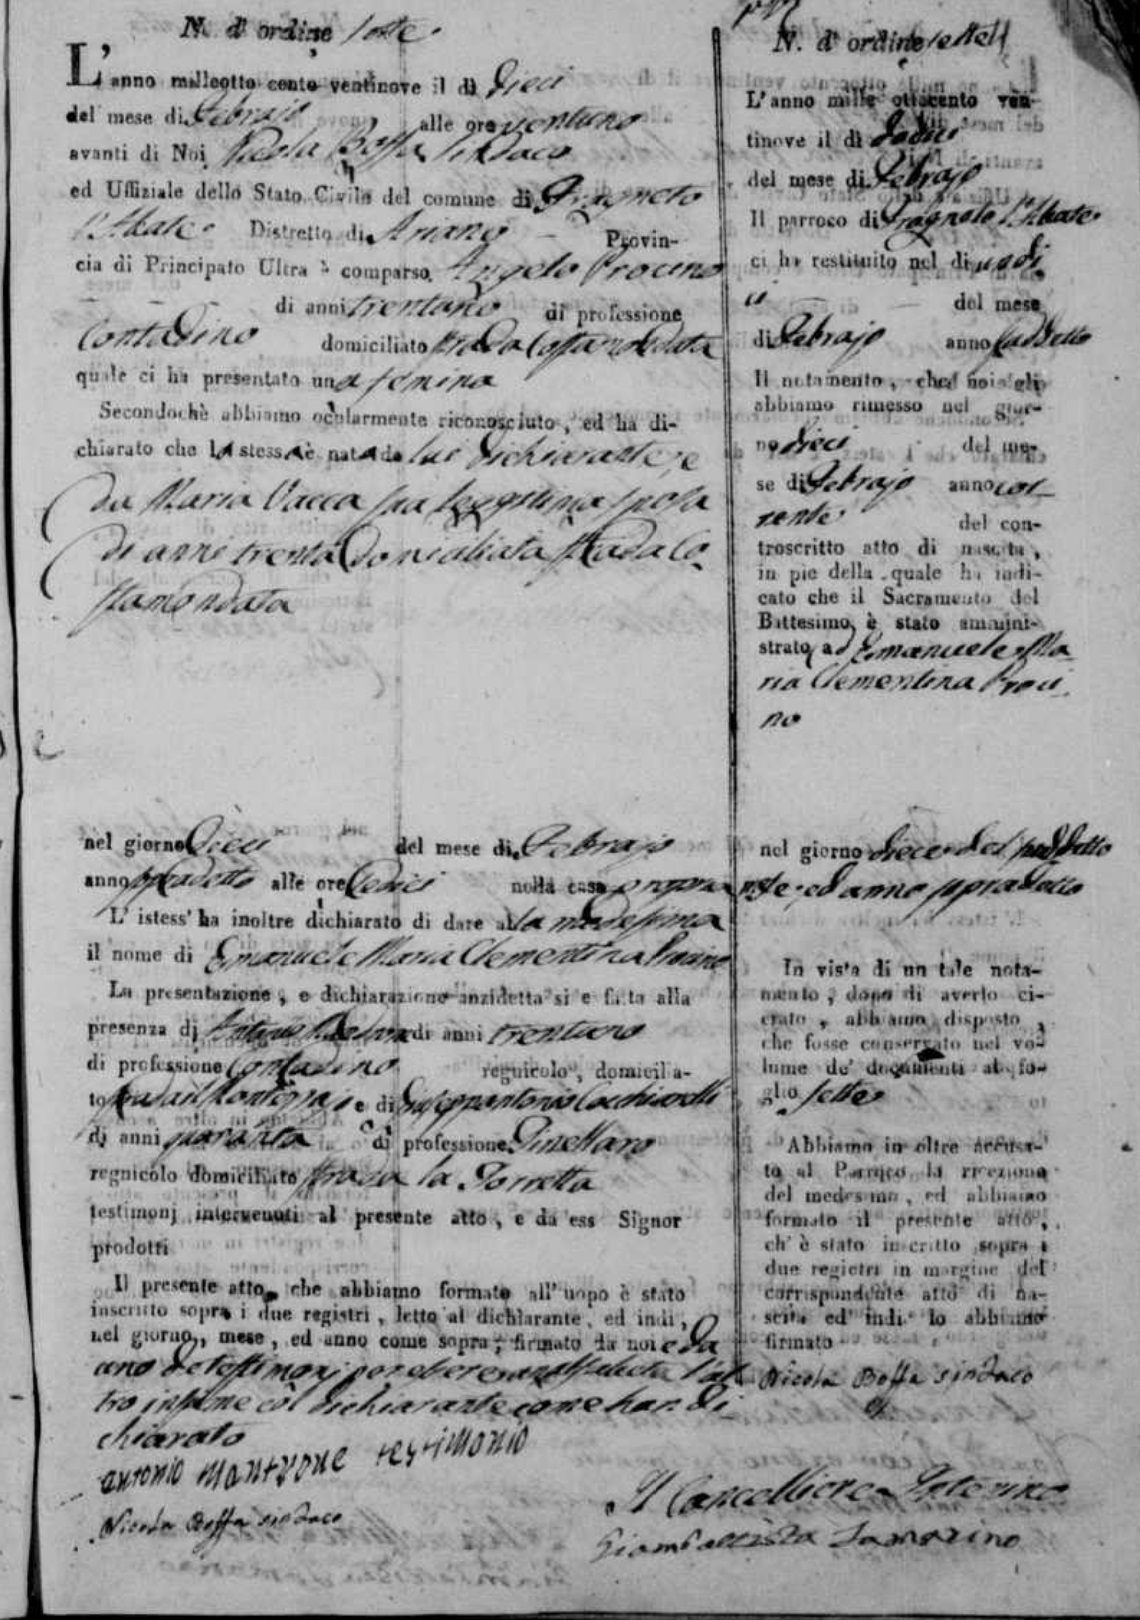 N. d'ordine sette
L'anno milleotto cento ventinove il dì dieci
del mese di Febrajo alle ore ventuno
avanti di Noi Nicola Boffa Sindaco
ed Uffiziale dello Stato Civile del comune di Fragneto
l'Abate Distretto di Ariano Provin-
cia di Principato Ultra è comparso Angelo Procino
di anni trentuno di professione
Contadino domiciliato strada Costamondata
quale ci ha presentato una femina
Secondochè abbiamo ocularmente riconosciuto, ed ha di-
chiarato che la stessa è nata da lui dichiarante, e
da Maria Vacca sua legittima sposa
di anni trenta domiciliata strada Co
stamondata
nel giorno dieci del mese di Febrajo
anno sudetto alle ore sedici nella casa propria
L'istess' ha inoltre dichiarato di dare alla medesima
il nome di Emanuele Maria Clementina Procino
La presentazione, e dichiarazione anzidetta si e fatta alla
presenza di Antonio di anni trentuno
di professione Contadino regnicolo, domicilia-
to strada e di Giuseppantonio Cocchiarelli
di anni quaranta di professione
regnicolo domiciliato strada la Torretta
testimonj intervenuti al presente atto, e da ess Signor
prodotti
Il presente atto, che abbiamo formato all'uopo è stato
inscritto sopra i due registri, letto al dichiarante, ed indi,
nel giorno, mese, ed anno come sopra, firmato da noi e da
uno de testimonj per essere l'al
tro insieme col dichiarante come han di
chiarato
antonio mantzone testimonio
Nicola Boffa sindaco
N. d'ordine sette
L'anno mille ottocento ven-
tinove il dì dodici
del mese di Febrajo
Il parroco di Fragneto l'Abate
ci ha restituito nel dì undi
ci del mese
di Febrajo anno sudetto
Il notamento, che noi gli
abbiamo rimesso nel gior-
no dieci del me-
se di Febrajo anno cor
rente del con-
troscritto atto di nascita,
in pie della quale ha indi-
cato che il Sacramento del
Battesimo è stato ammini-
strato ad Emanuele Ma
ria Clementina Proci
no
nel giorno dieci del suddetto
mese, ed anno sopradetto
In vista di un tale nota-
mento, dopo di averlo ci-
frato, abbiamo disposto,
che fosse conservato nel vo-
lume de' documenti al fo-
glio sette
Abbiamo in oltre accusa-
to al Parroco la ricezione
del medesimo, ed abbiamo
formato il presente atto,
ch'è stato inscritto sopra i
due registri in margine del
corrispondente atto di na-
scita ed indi lo abbiamo
firmato
Nicola Boffa sindaco
Il Cancelliere Interino
Giambattista